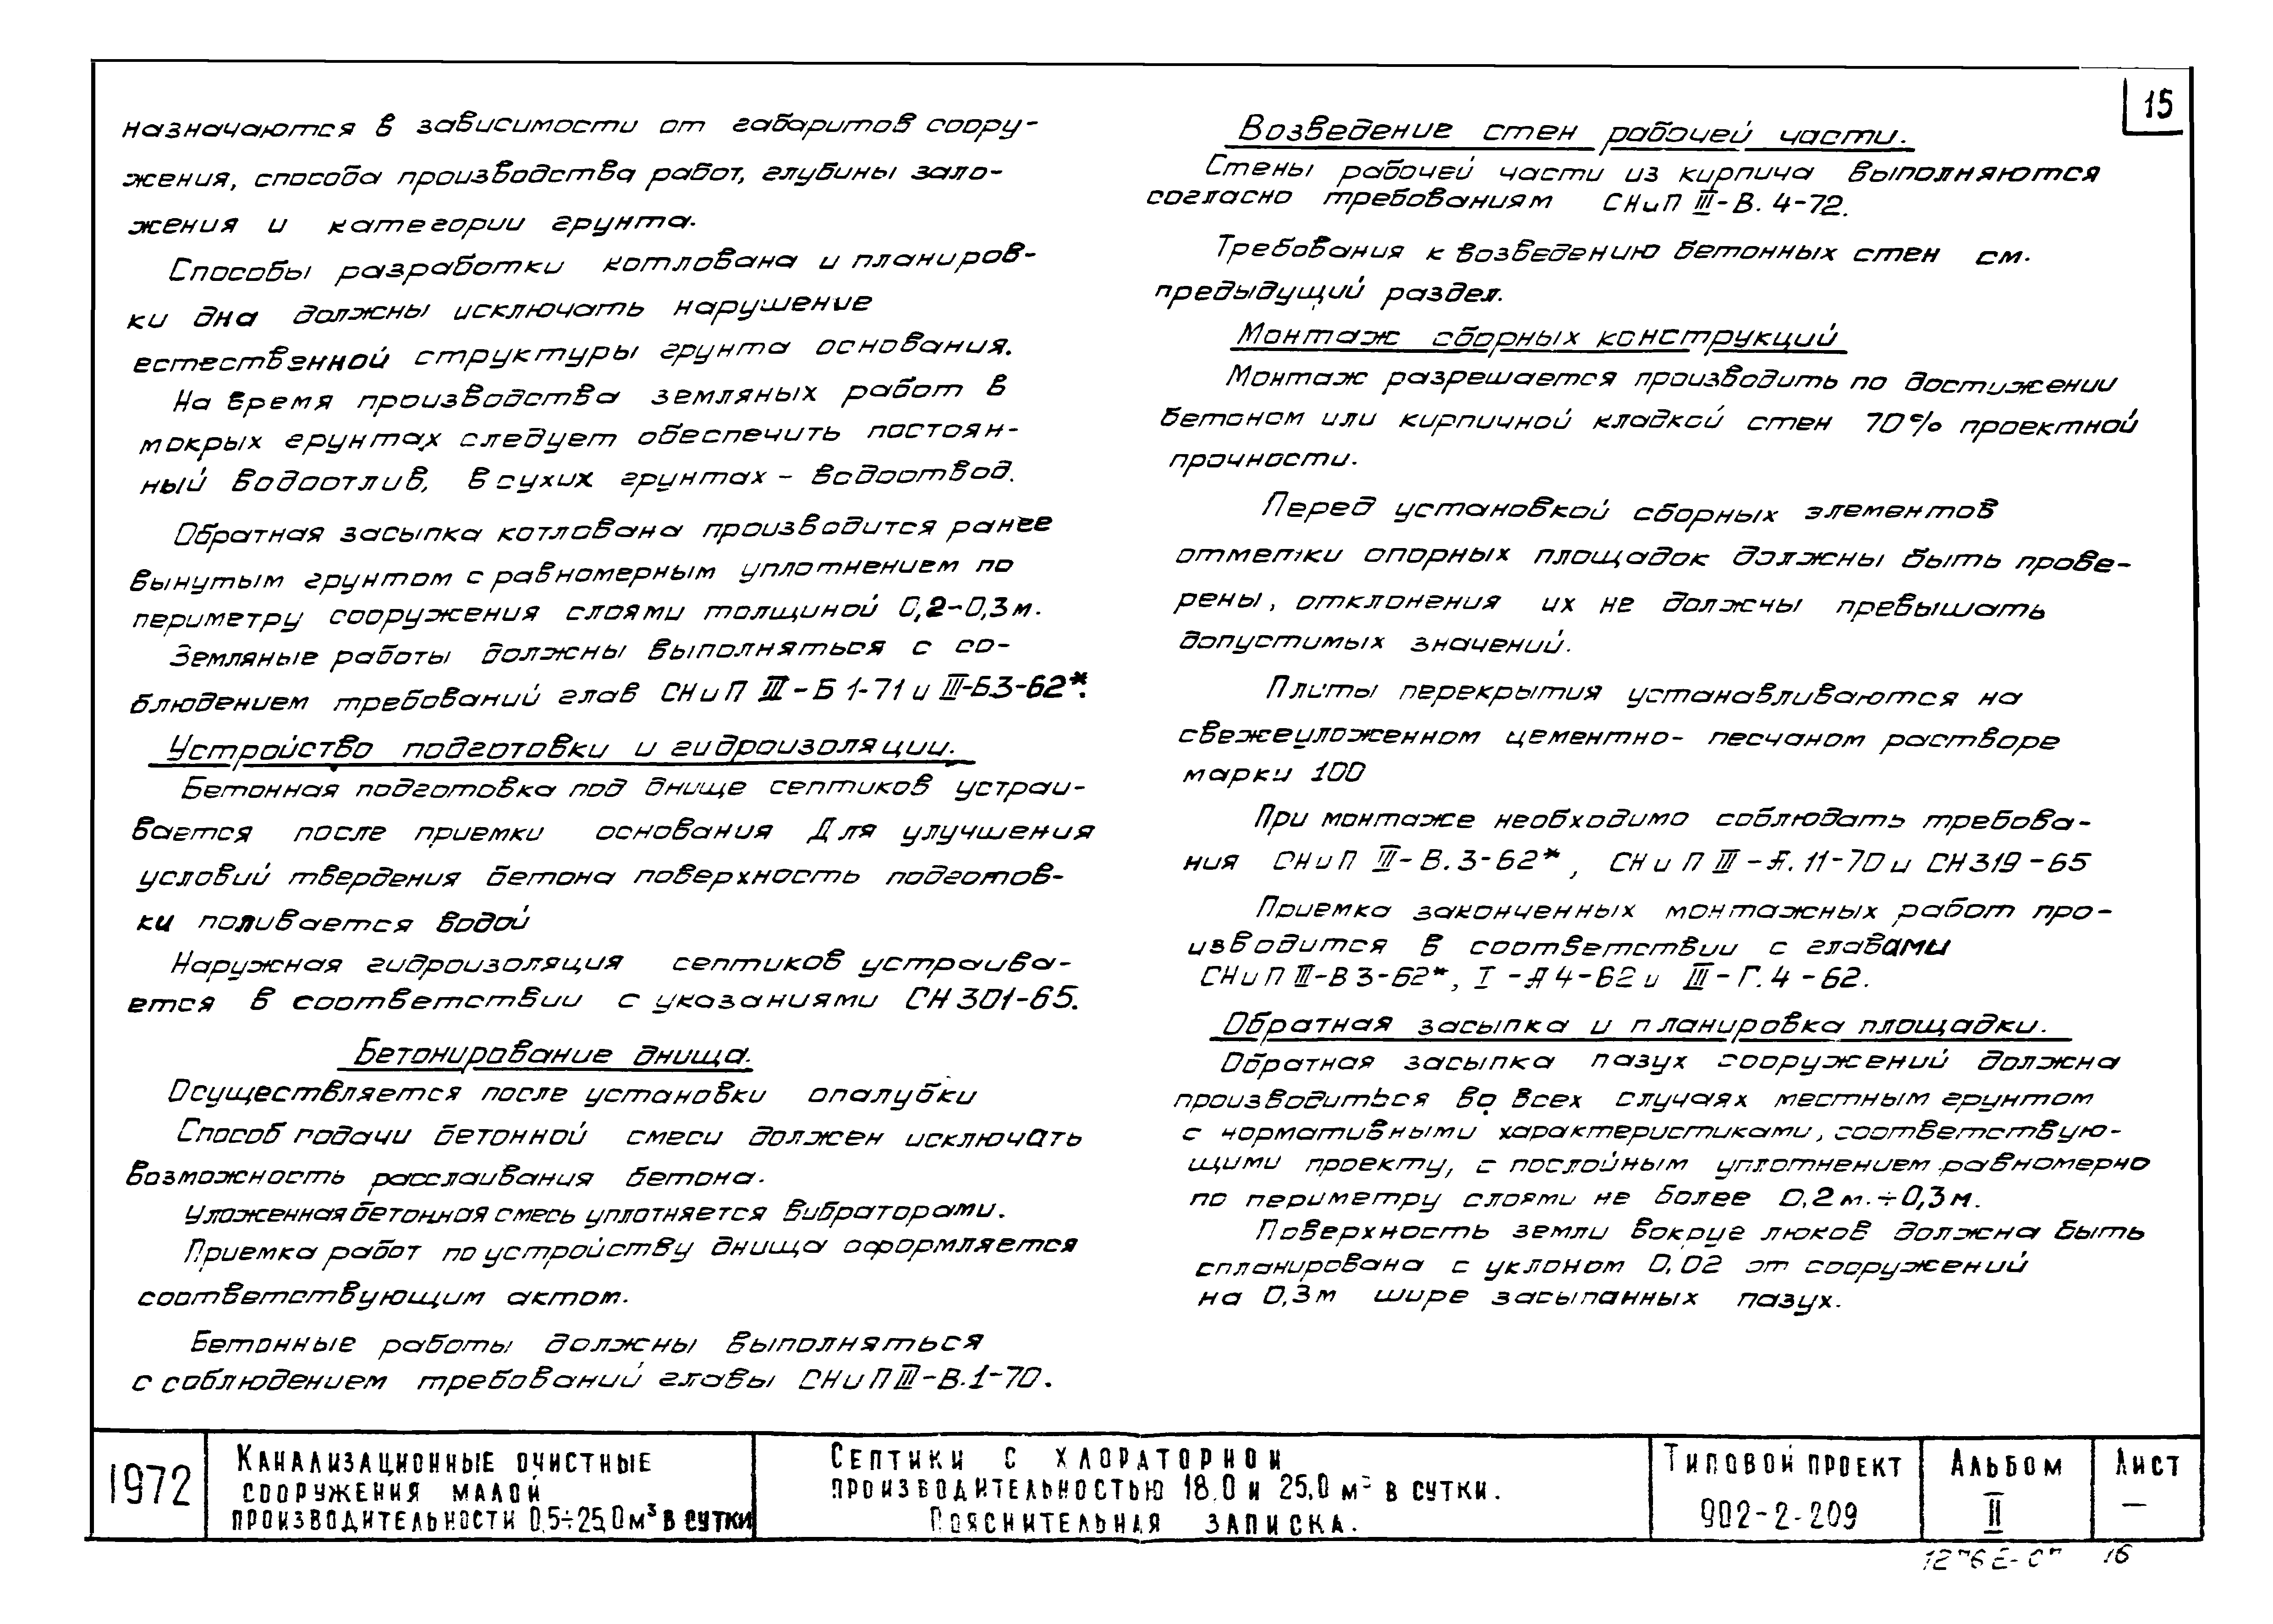 назначаются в зависимости от габаритов соору-
жения, способа производства работ, глубины зало-
жения и категории грунта.
Способы разработки котлована и планиров-
ки дна должны исключать нарушение
естественной структуры грунта основания.
На время производства земляных работ в
мокрых грунтах следует обеспечить постоян-
ный водоотлив, в сухих грунтах - водоотвод.
Обратная засыпка котлована производится ранее
вынутым грунтом с равномерным уплотнением по
периметру сооружения слоями толщиной 0,2-0,3 м.
Земляные работы должны выполняться с со-
блюдением требований глав СНиП III-Б 1-71 и III-Б3-62*.
Устройство подготовки и гидроизоляции.
Бетонная подготовка под днище септиков устраи-
вается после приемки основания Для улучшения
условий твердения бетона поверхность подготов-
ки поливается водой
Наружная гидроизоляция септиков устраива-
ется в соответствии с указаниями СН 301-65.
Бетонирование днища.
Осуществляется после установки опалубки
Способ подачи бетонной смеси должен исключать
возможность расслаивания бетона.
Уложенная бетонная смесь уплотняется вибраторами.
Приемка работ по устройству днища оформляется
соответствующим актом.
Бетонные работы должны выполняться
с соблюдением требований главы СНиП III-В.1-70.
15
Возведение стен рабочей части.
Стены рабочей части из кирпича выполняются
согласно требованиям СНиП III-В. 4-72.
Требования к возведению бетонных стен см.
предыдущий раздел.
Монтаж сборных конструкций
Монтаж разрешается производить по достижении
бетоном или кирпичной кладкой стен 70% проектной
прочности.
Перед установкой сборных элементов
отметки опорных площадок должны быть прове-
рены, отклонения их не должны превышать
допустимых значений.
Плиты перекрытия устанавливаются на
свежеуложенном цементно-песчаном растворе
марки 100
При монтаже необходимо соблюдать требова-
ния СНиП III-В.3-62*, СНиП III-А.11-70 и СН 319-65
Приемка законченных монтажных работ про-
изводится в соответствии с главами
СНиП III-В 3-62*, I-А 4-62 и III-Г.4-62.
Обратная засыпка и планировка площадки.
Обратная засыпка пазух сооружений должна
производиться во всех случаях местным грунтом
с нормативными характеристиками, соответствую-
щими проекту, с послойным уплотнением равномерно
по периметру слоями не более 0,2 м.÷0,3 м.
Поверхность земли вокруг люков должна быть
спланирована с уклоном 0,02 от сооружений
на 0,3м шире засыпанных пазух.
1972
Канализационные очистные
сооружения малой
производительности 0,5÷25,0 м³ в сутки
Септики с хлораторной
производительностью 18,0 и 25,0 м³ в сутки.
Пояснительная записка.
Типовой проект
902-2-209
Альбом
II
Лист
—
16